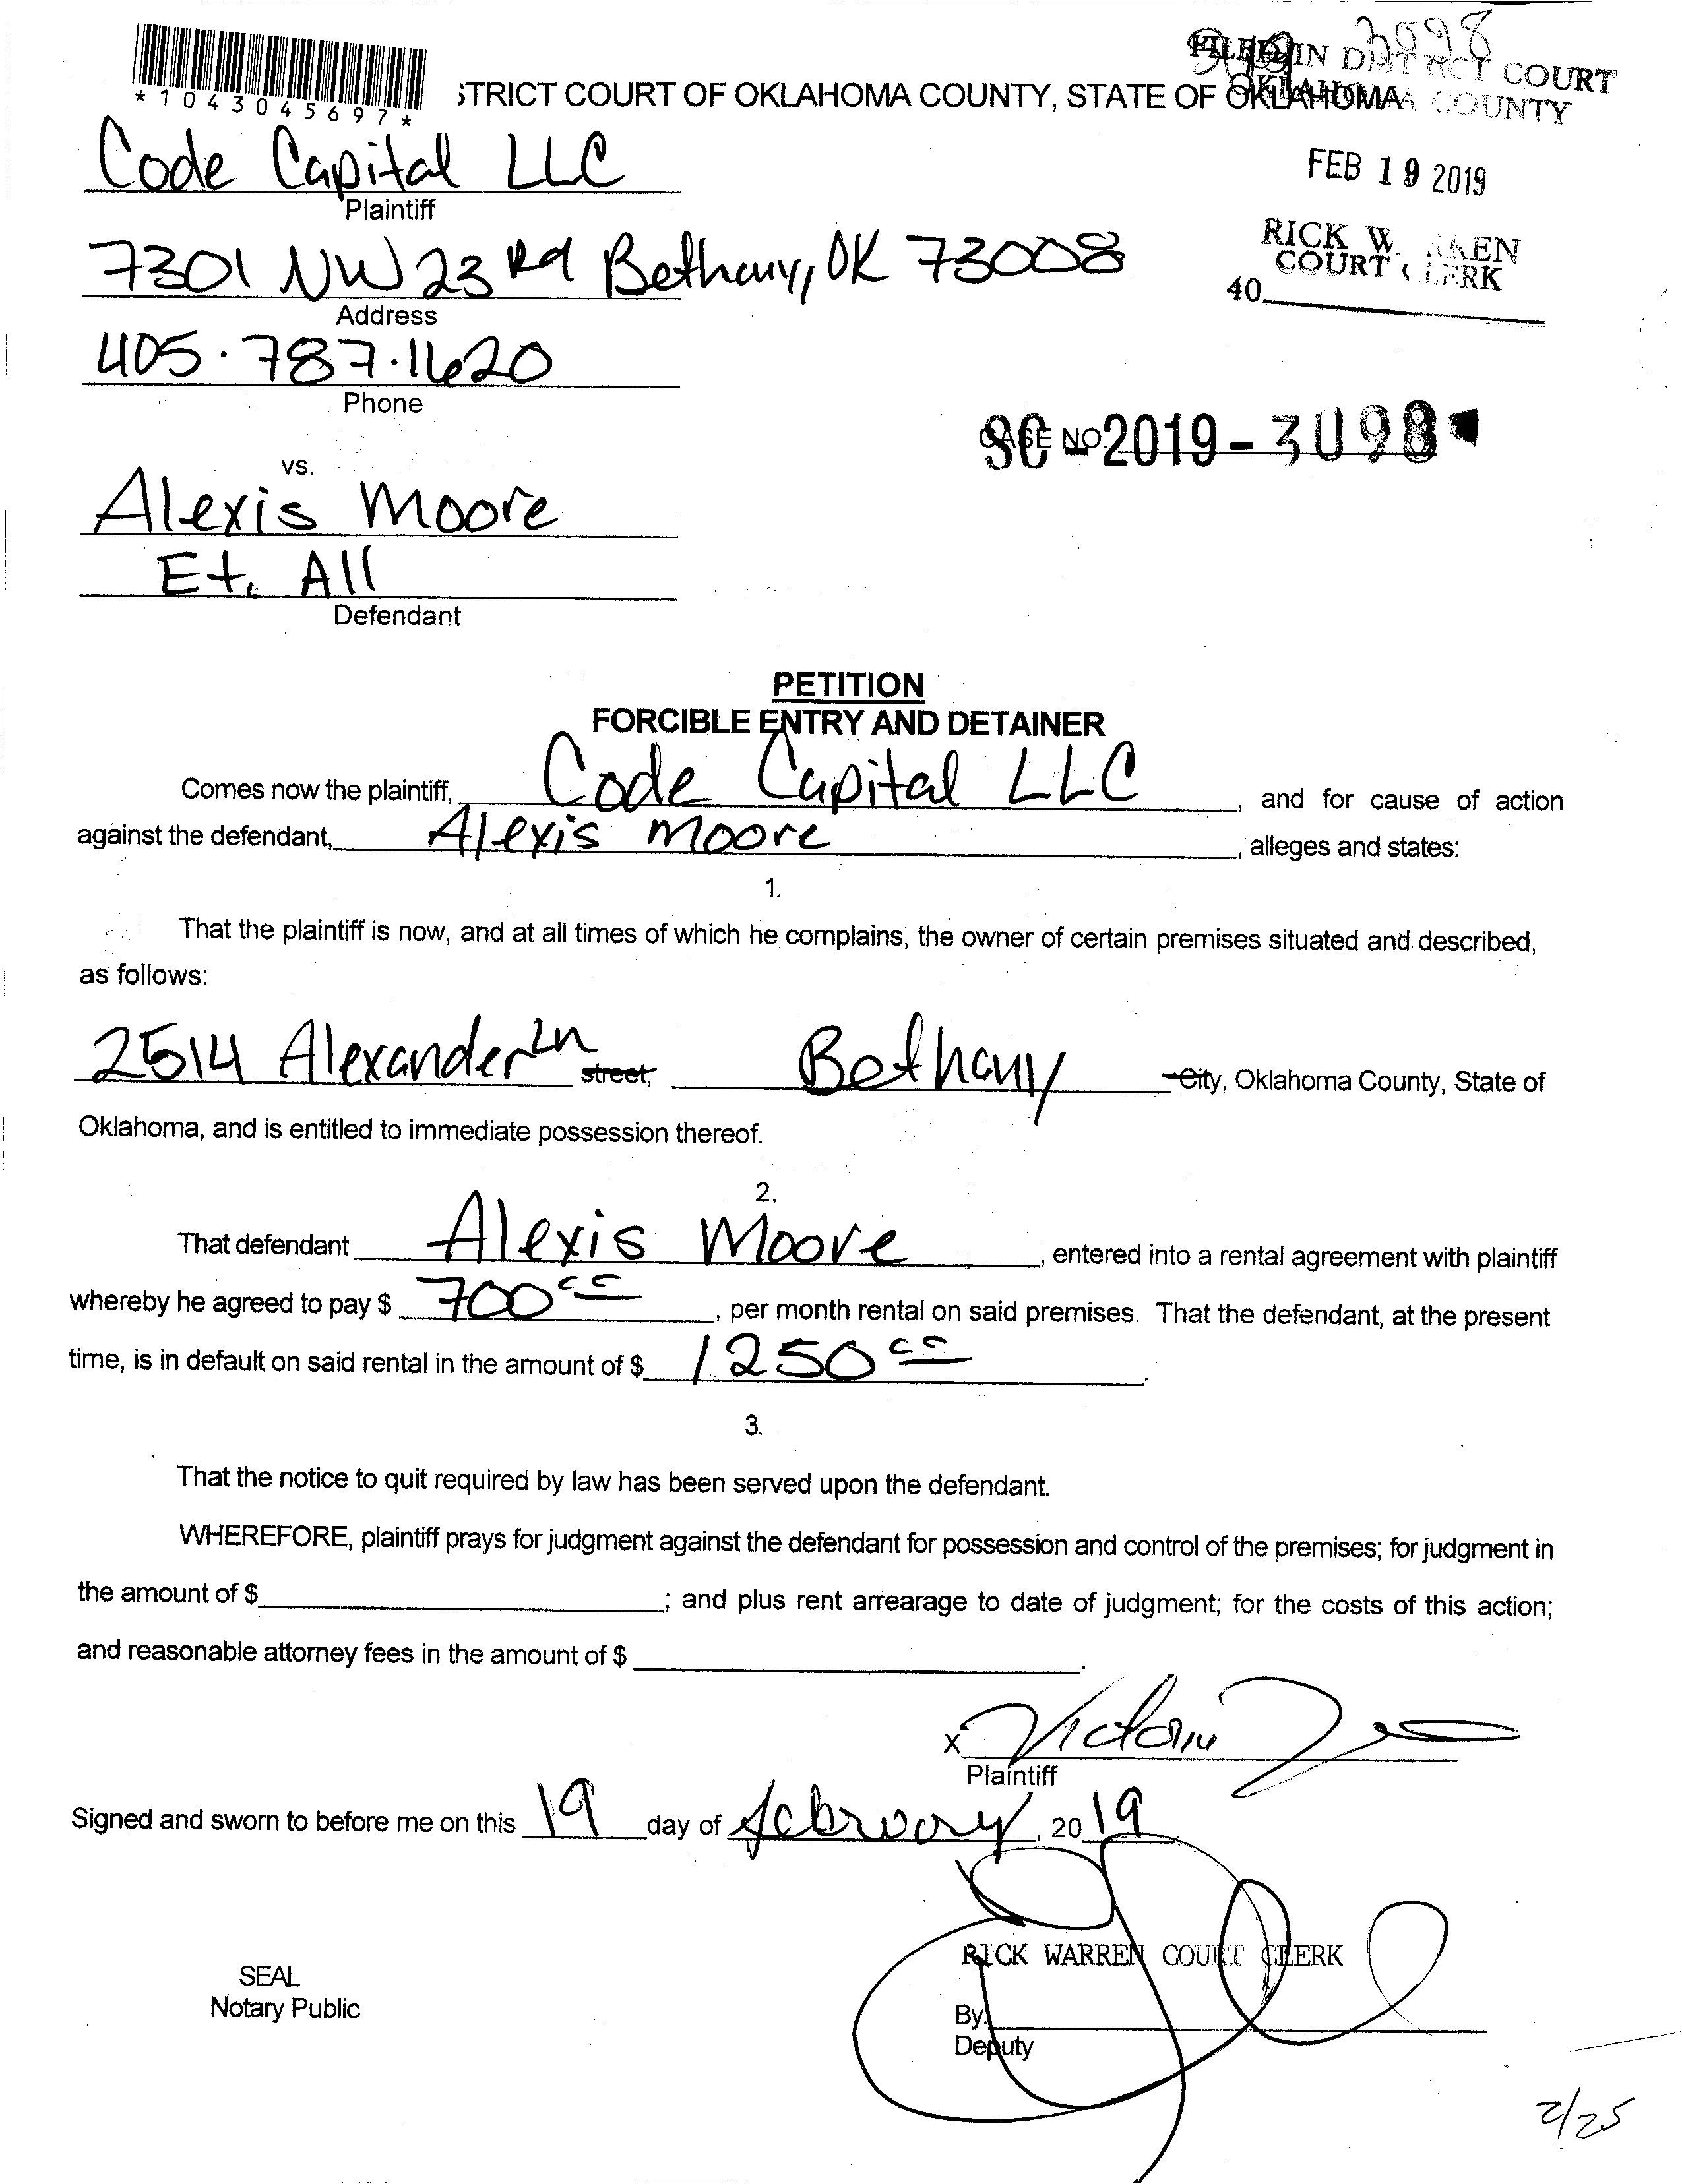 FILED IN DISTRICT COURT
OKLAHOMA COUNTY
3098
*1043045697*
STRICT COURT OF OKLAHOMA COUNTY, STATE OF OKLAHOMA
FEB 19 2019
RICK W
COURT CLERK
40
Code Capital LLC
Plaintiff
7301 NW 23rd Bethany, OK 73008
Address
405.787.1620
Phone
CASE NO.
SC-2019-3098
vs.
Alexis Moore
Et. All
Defendant
PETITION
FORCIBLE ENTRY AND DETAINER
Comes now the plaintiff, Code Capital LLC, and for cause of action
against the defendant, Alexis Moore, alleges and states:
1.
That the plaintiff is now, and at all times of which he complains, the owner of certain premises situated and described,
as follows:
2514 Alexander Ln street, Bethany City, Oklahoma County, State of
Oklahoma, and is entitled to immediate possession thereof.
2.
That defendant Alexis Moore, entered into a rental agreement with plaintiff
whereby he agreed to pay $ 700 , per month rental on said premises. That the defendant, at the present
time, is in default on said rental in the amount of $ 1250 .
3.
That the notice to quit required by law has been served upon the defendant.
WHEREFORE, plaintiff prays for judgment against the defendant for possession and control of the premises; for judgment in
the amount of $ ; and plus rent arrearage to date of judgment; for the costs of this action;
and reasonable attorney fees in the amount of $ .
X Victoria
Plaintiff
Signed and sworn to before me on this 19 day of february, 2019
RICK WARREN COURT CLERK
SEAL
Notary Public
By:
Deputy
2/25